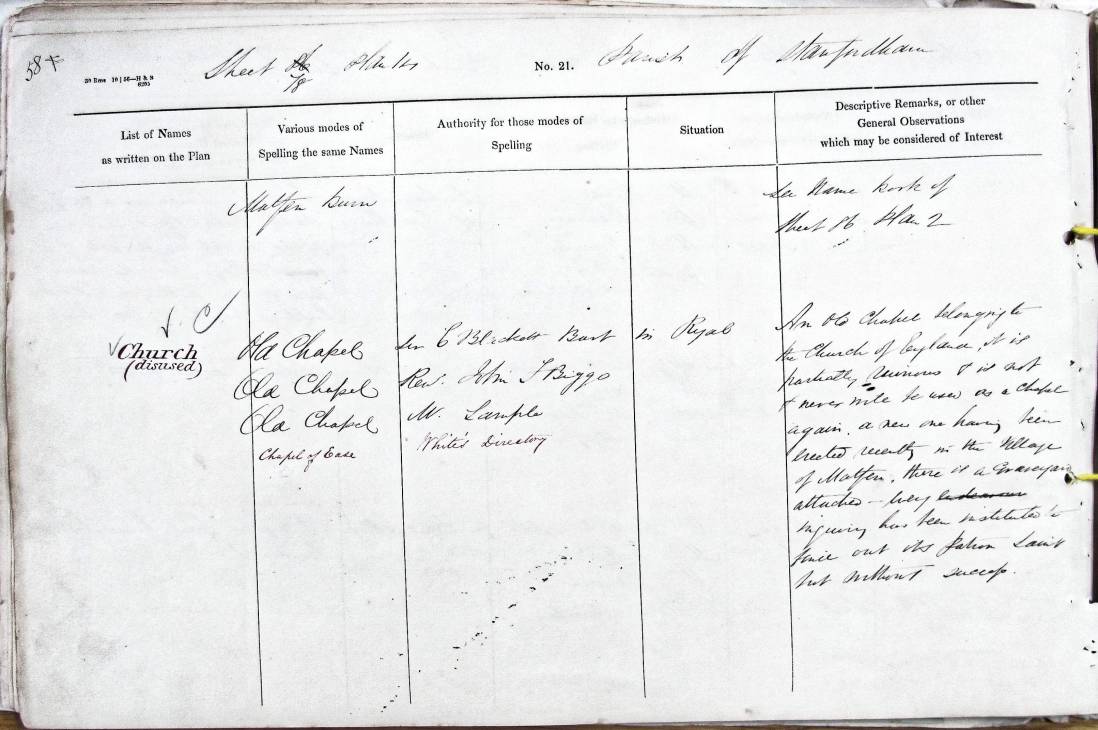 584
20 Rms 10 | 56—H & S
6205
Sheet 86 78 Plan No. 21. Parish of Stamfordham
List of Names
as written on the Plan
Various modes of
Spelling the same Names
Authority for those modes of
Spelling
Situation
Descriptive Remarks, or other
General Observations
which may be considered of Interest
Matfen Burn
See Name Book of
Sheet 86 Plan 2
Church
(disused)
Old Chapel
Old Chapel
Old Chapel
Chapel of Ease
Sir C Blackett Bart
Rev. John F Biggs
M. Sample
White's Directory
in Ryal
An Old Chapel belonging to
the Church of England, it is
partially ruinous & is not
& never will be used as a Chapel
again. a new one having been
erected recently in the Village
of Matfen, there is a Graveyard
attached – every endeavour
inquiry has been instituted to
find out its Patron Saint
but without success.